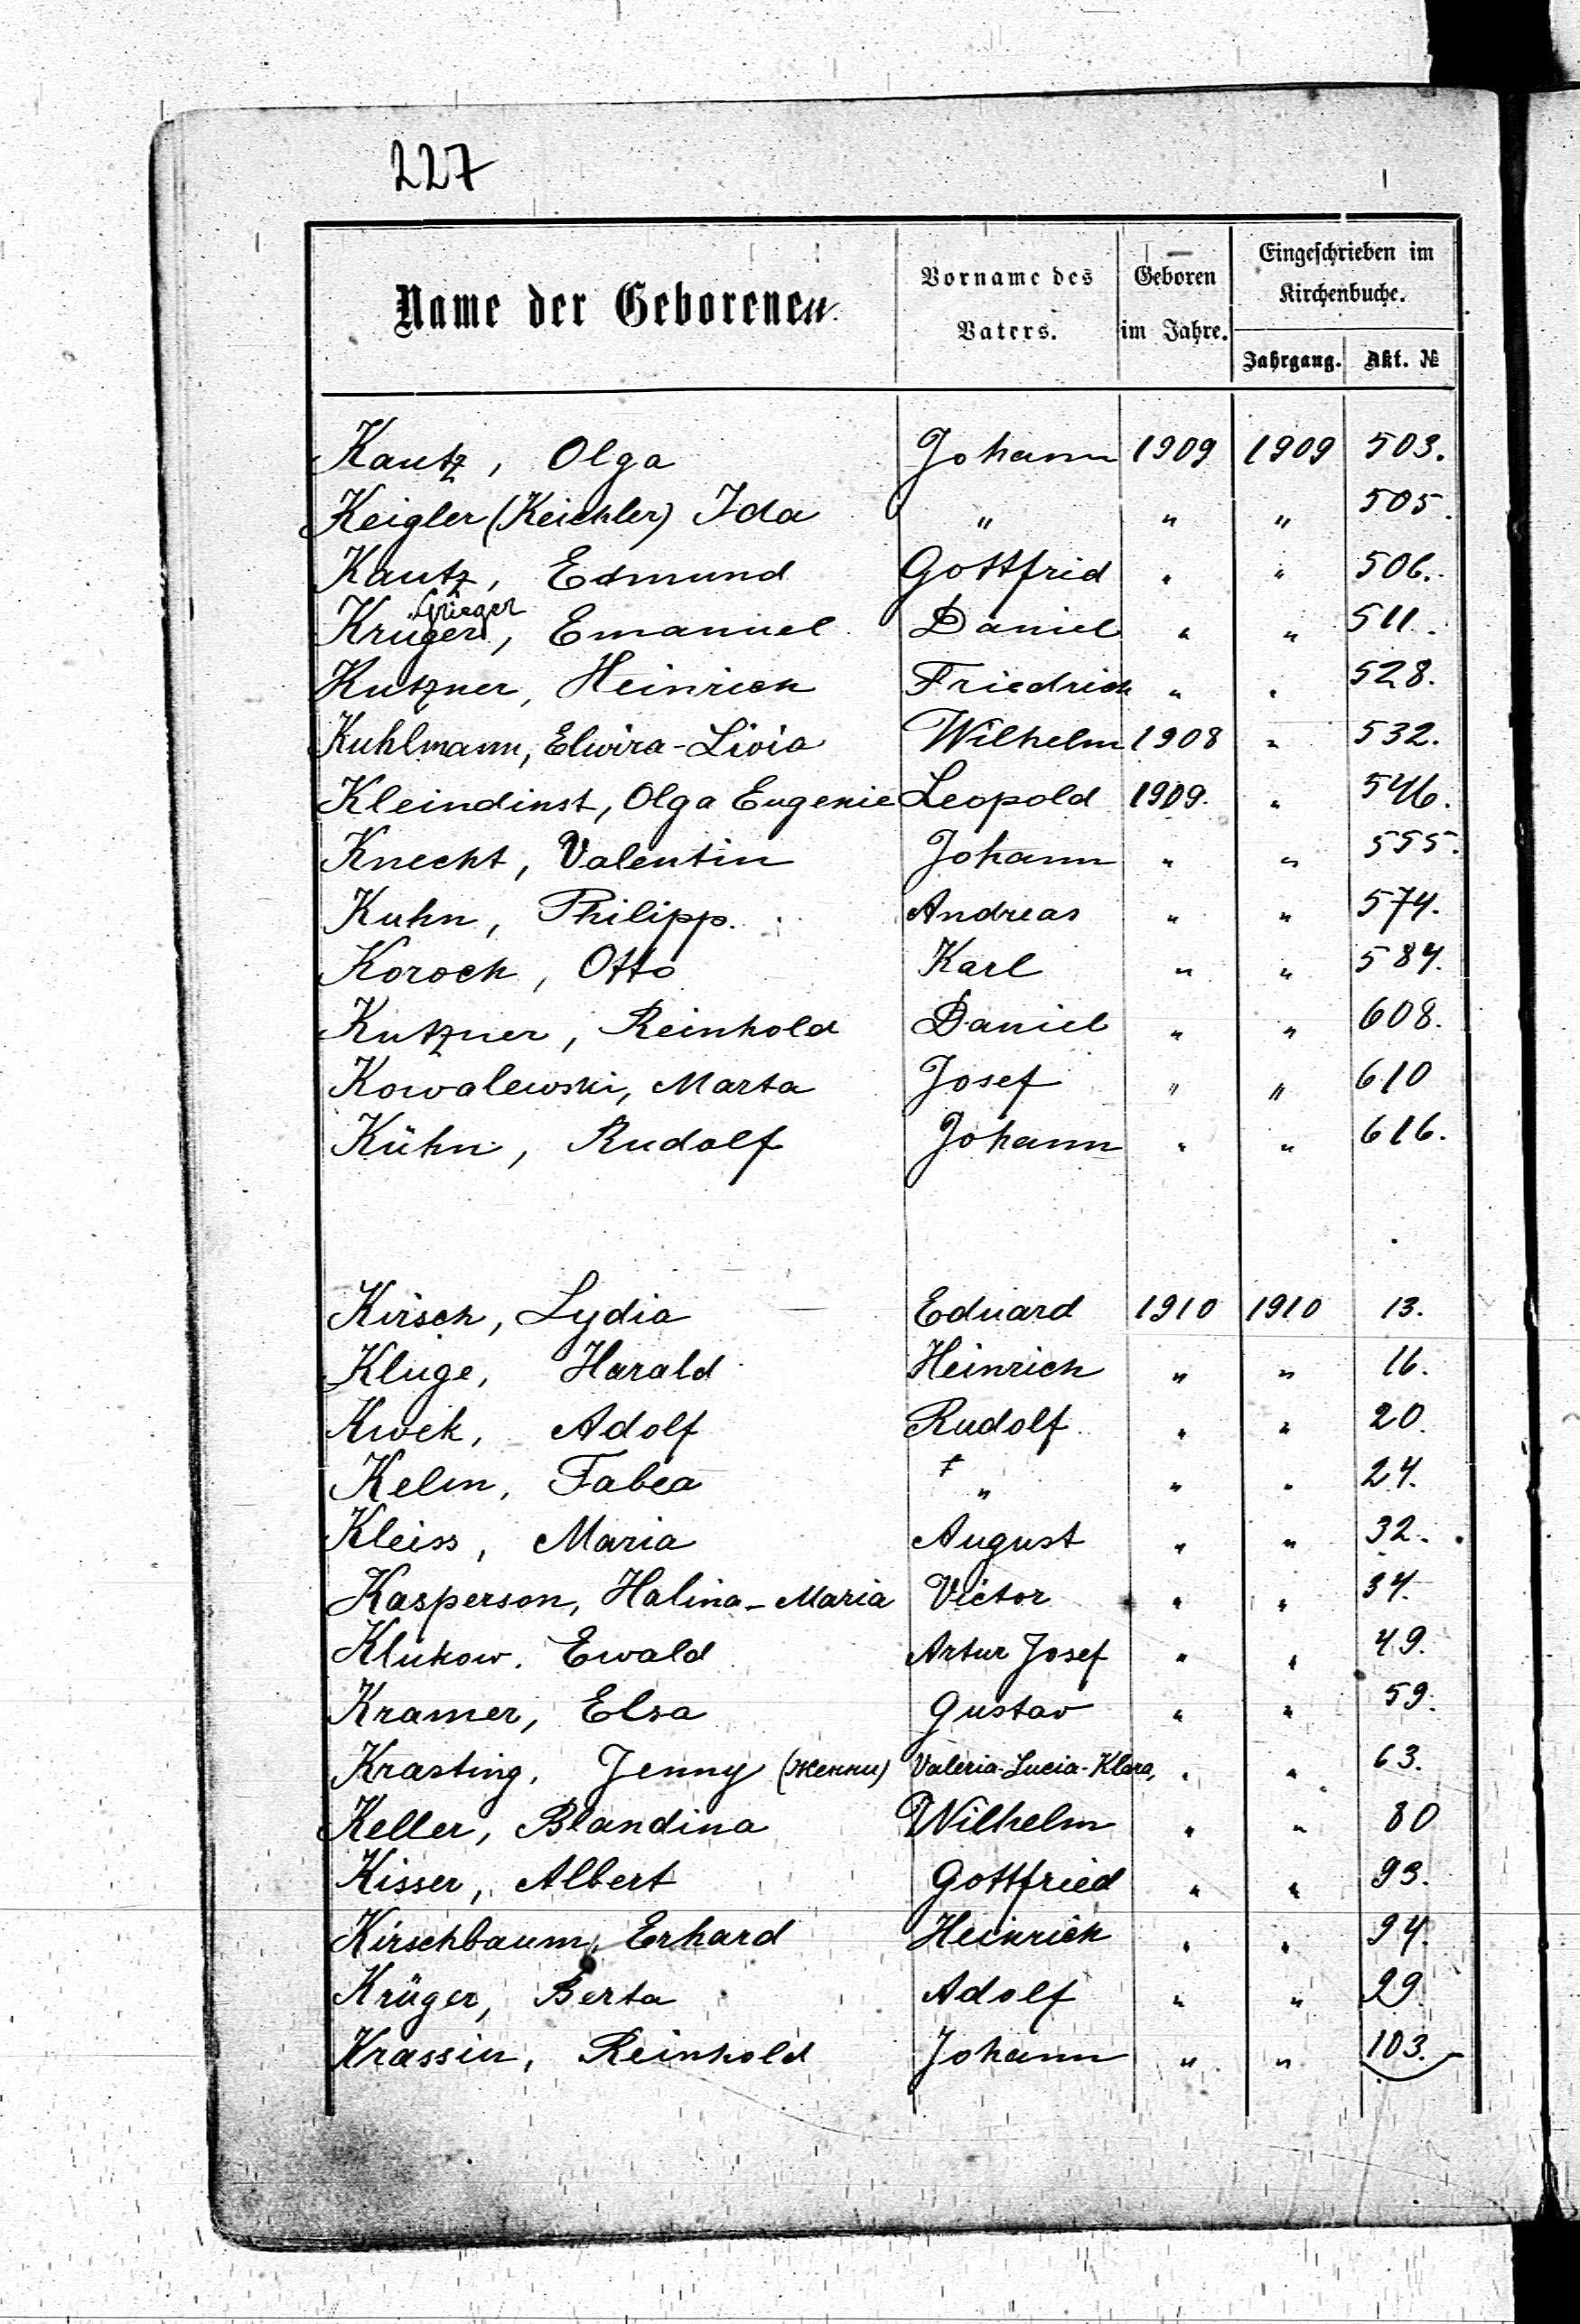 227
Name der Geborenen. Vorname des Vaters. Geboren im Jahre. Eingeschrieben im Kirchenbuche. Jahrgang. Akt. №
Kautz, Olga Johann 1909 1909 503.
Keigler (Keichler) Ida " " " 505.
Kautz, Edmund Gottfrid " " 506.
Grieger
Krüger, Emanuel Daniel " " 511.
Kutzner, Heinrich Friedrich " " 528.
Kuhlmann, Elwira-Livia Wilhelm 1908 " 532.
Kleindinst, Olga Eugenie Leopold 1909. " 546.
Knecht, Valentin Johann " " 555.
Kuhn, Philipp. Andreas " " 574.
Koroch, Otto Karl " " 584.
Kutzner, Reinhold Daniel " " 608.
Kowalewski, Marta Josef " " 610
Kühn, Rudolf Johann " " 616.
Kirsch, Lydia Eduard 1910 1910 13.
Kluge, Harald Heinrich " " 16.
Kwek, Adolf Rudolf " " 20.
Kelm, Tabea " " " 24.
Kleiss, Maria August " " 32.
Kasperson, Halina-Maria Victor " " 34.
Klukow, Ewald Artur Josef " " 49.
Kramer, Elsa Gustav " " 59.
Krasting, Jenny (Женни) Valeria-Lucia-Klara, " " 63.
Keller, Blandina Wilhelm " " 80
Kisser, Albert Gottfried " " 93.
Kirschbaum, Erhard Heinrich " " 94.
Krüger, Berta Adolf " " 99.
Krassin, Reinhold Johann " " 103.